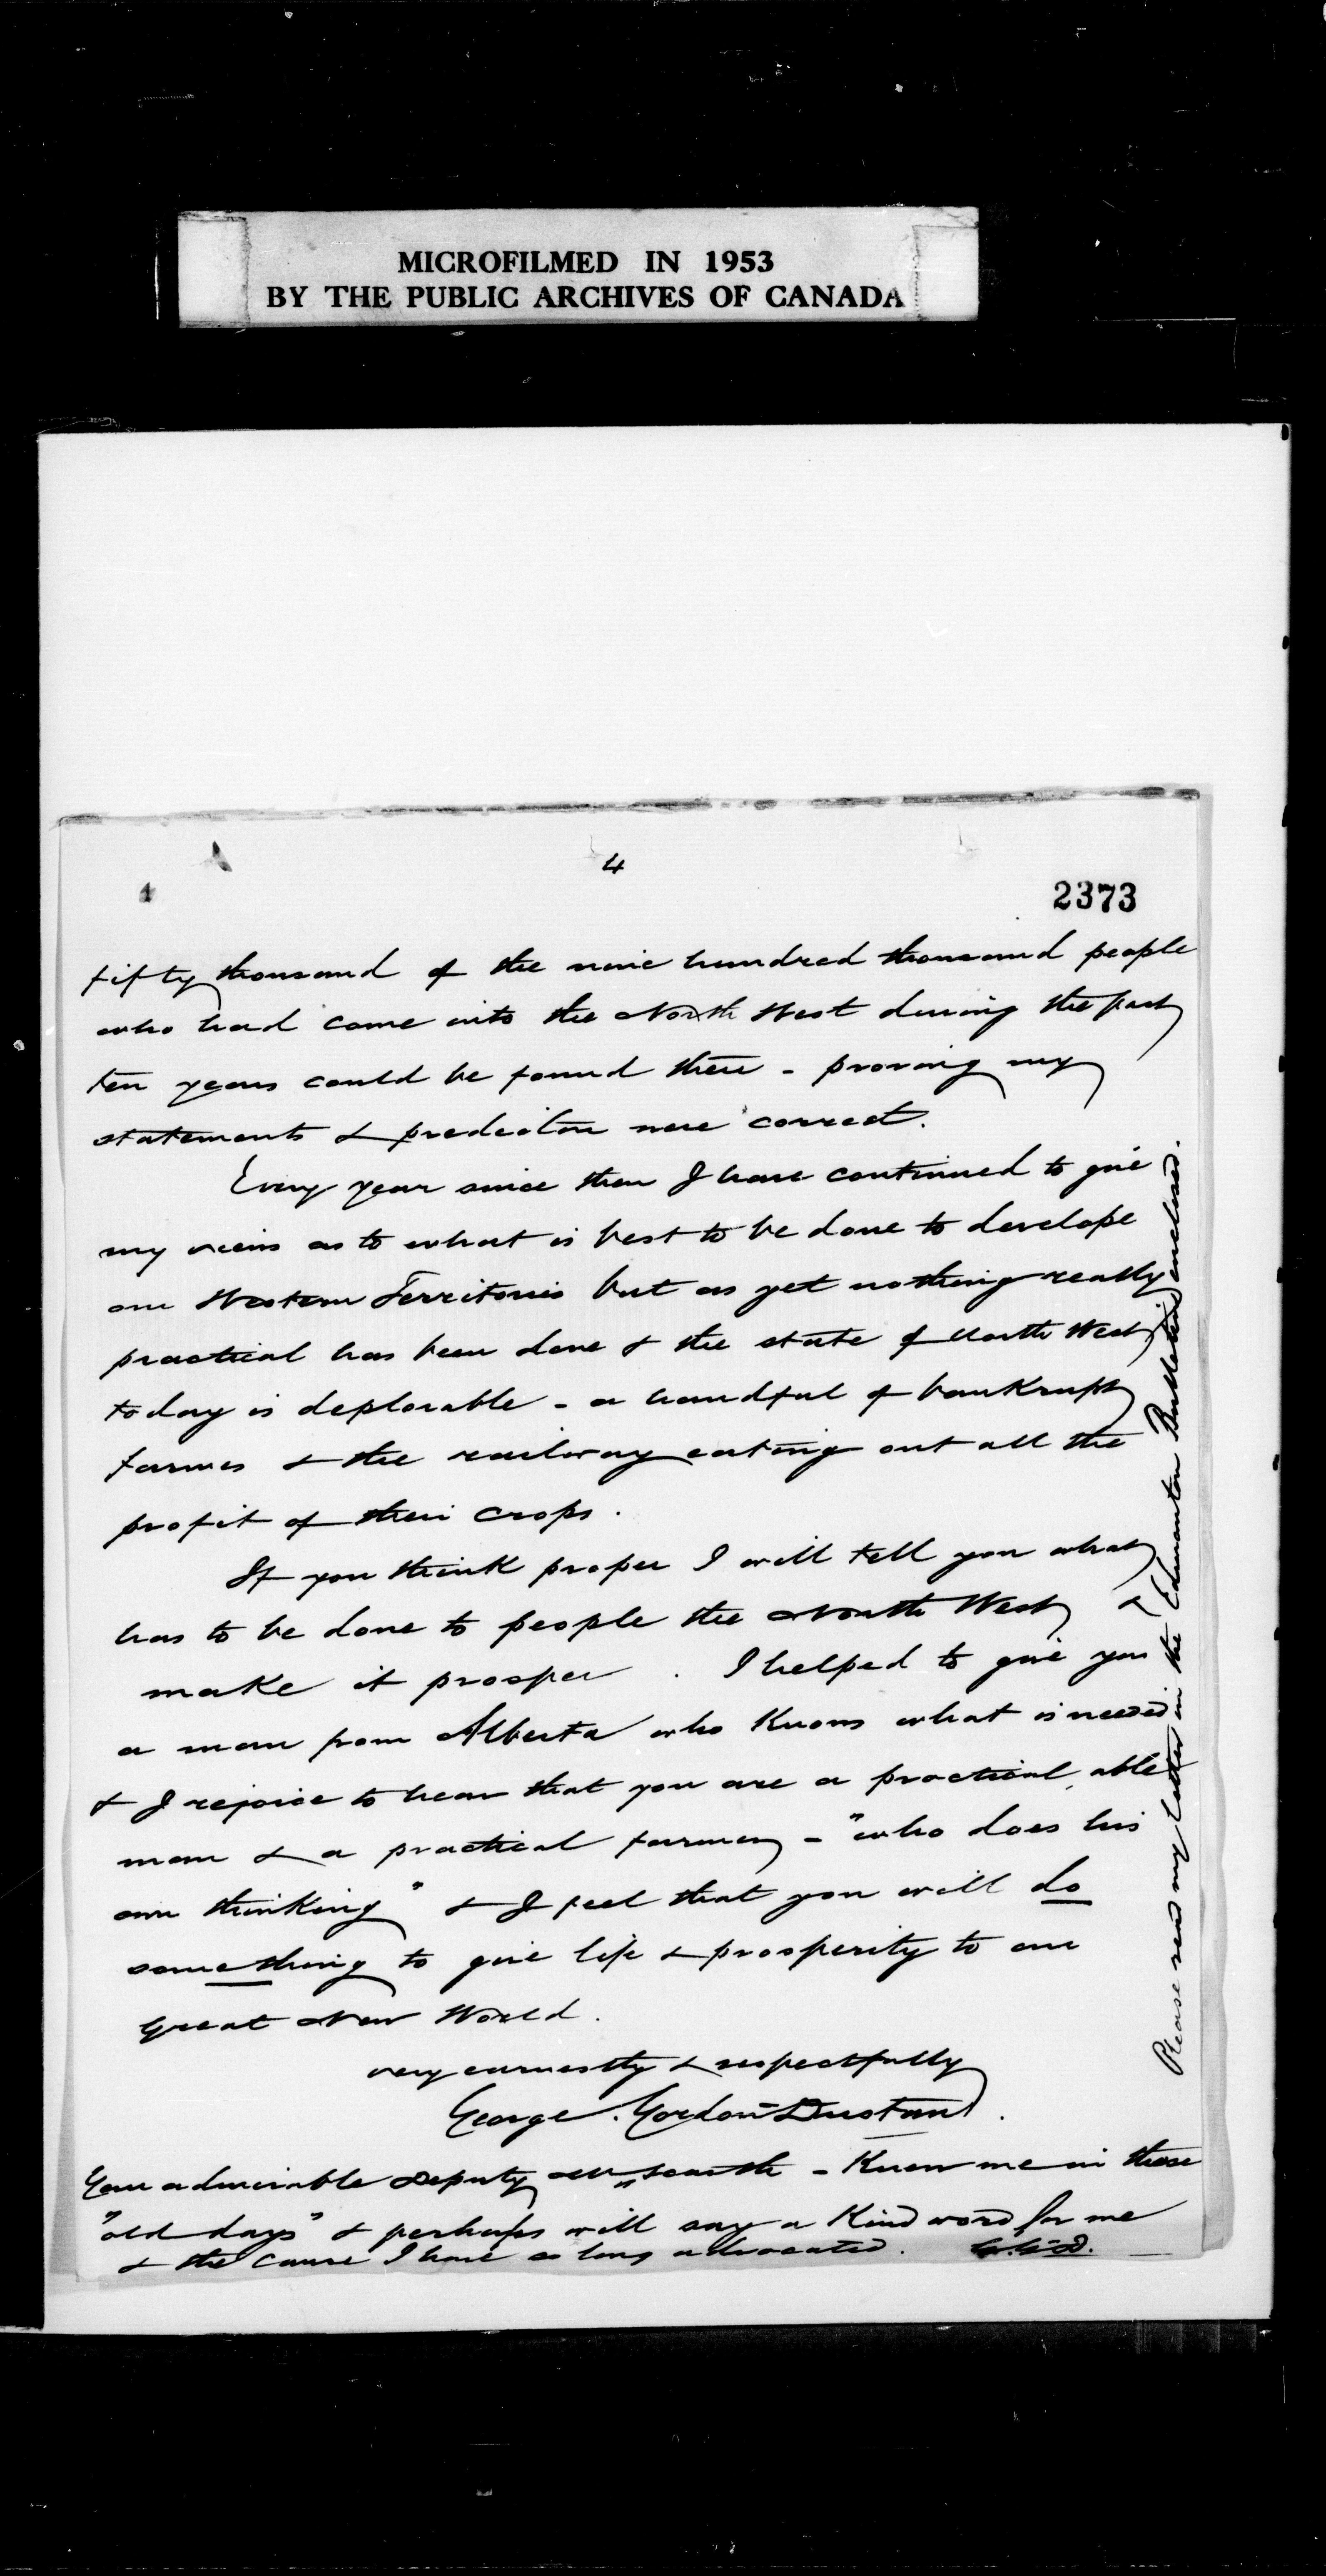 MICROFILMED IN 1953
BY THE PUBLIC ARCHIVES OF CANADA
4
2373
fifty thousand of the nine hundred thousand people
who had come into the North West during the past
ten years could be found there - proving my
statements & prediction were correct.
Every year since then I have continued to give
my views as to what is best to be done to develope
our Western Territories but as yet nothing really
practical has been done & the state of North West
to day is deplorable - a handful of bankrupt
farmers & the railway eating out all the
profit of their crops.
If you think proper I will tell you what
has to be done to people the North West &
make it prosper. I helped to give you
a man from Alberta who knows what is needed
& I rejoice to hear that you are a practical, able
man & a practical farmer - "who does his
own thinking" & I feel that you will do
something to give life & prosperity to our
great New World.
very earnestly & respectfully
George. Gordon Dustan.
Your admirable Deputy - Knew me in those
"old days" & perhaps will say a Kind word for me
& the cause I have so long advocated. G.G.D.
Please read my letter in the Edmonton Bulletin enclosed.